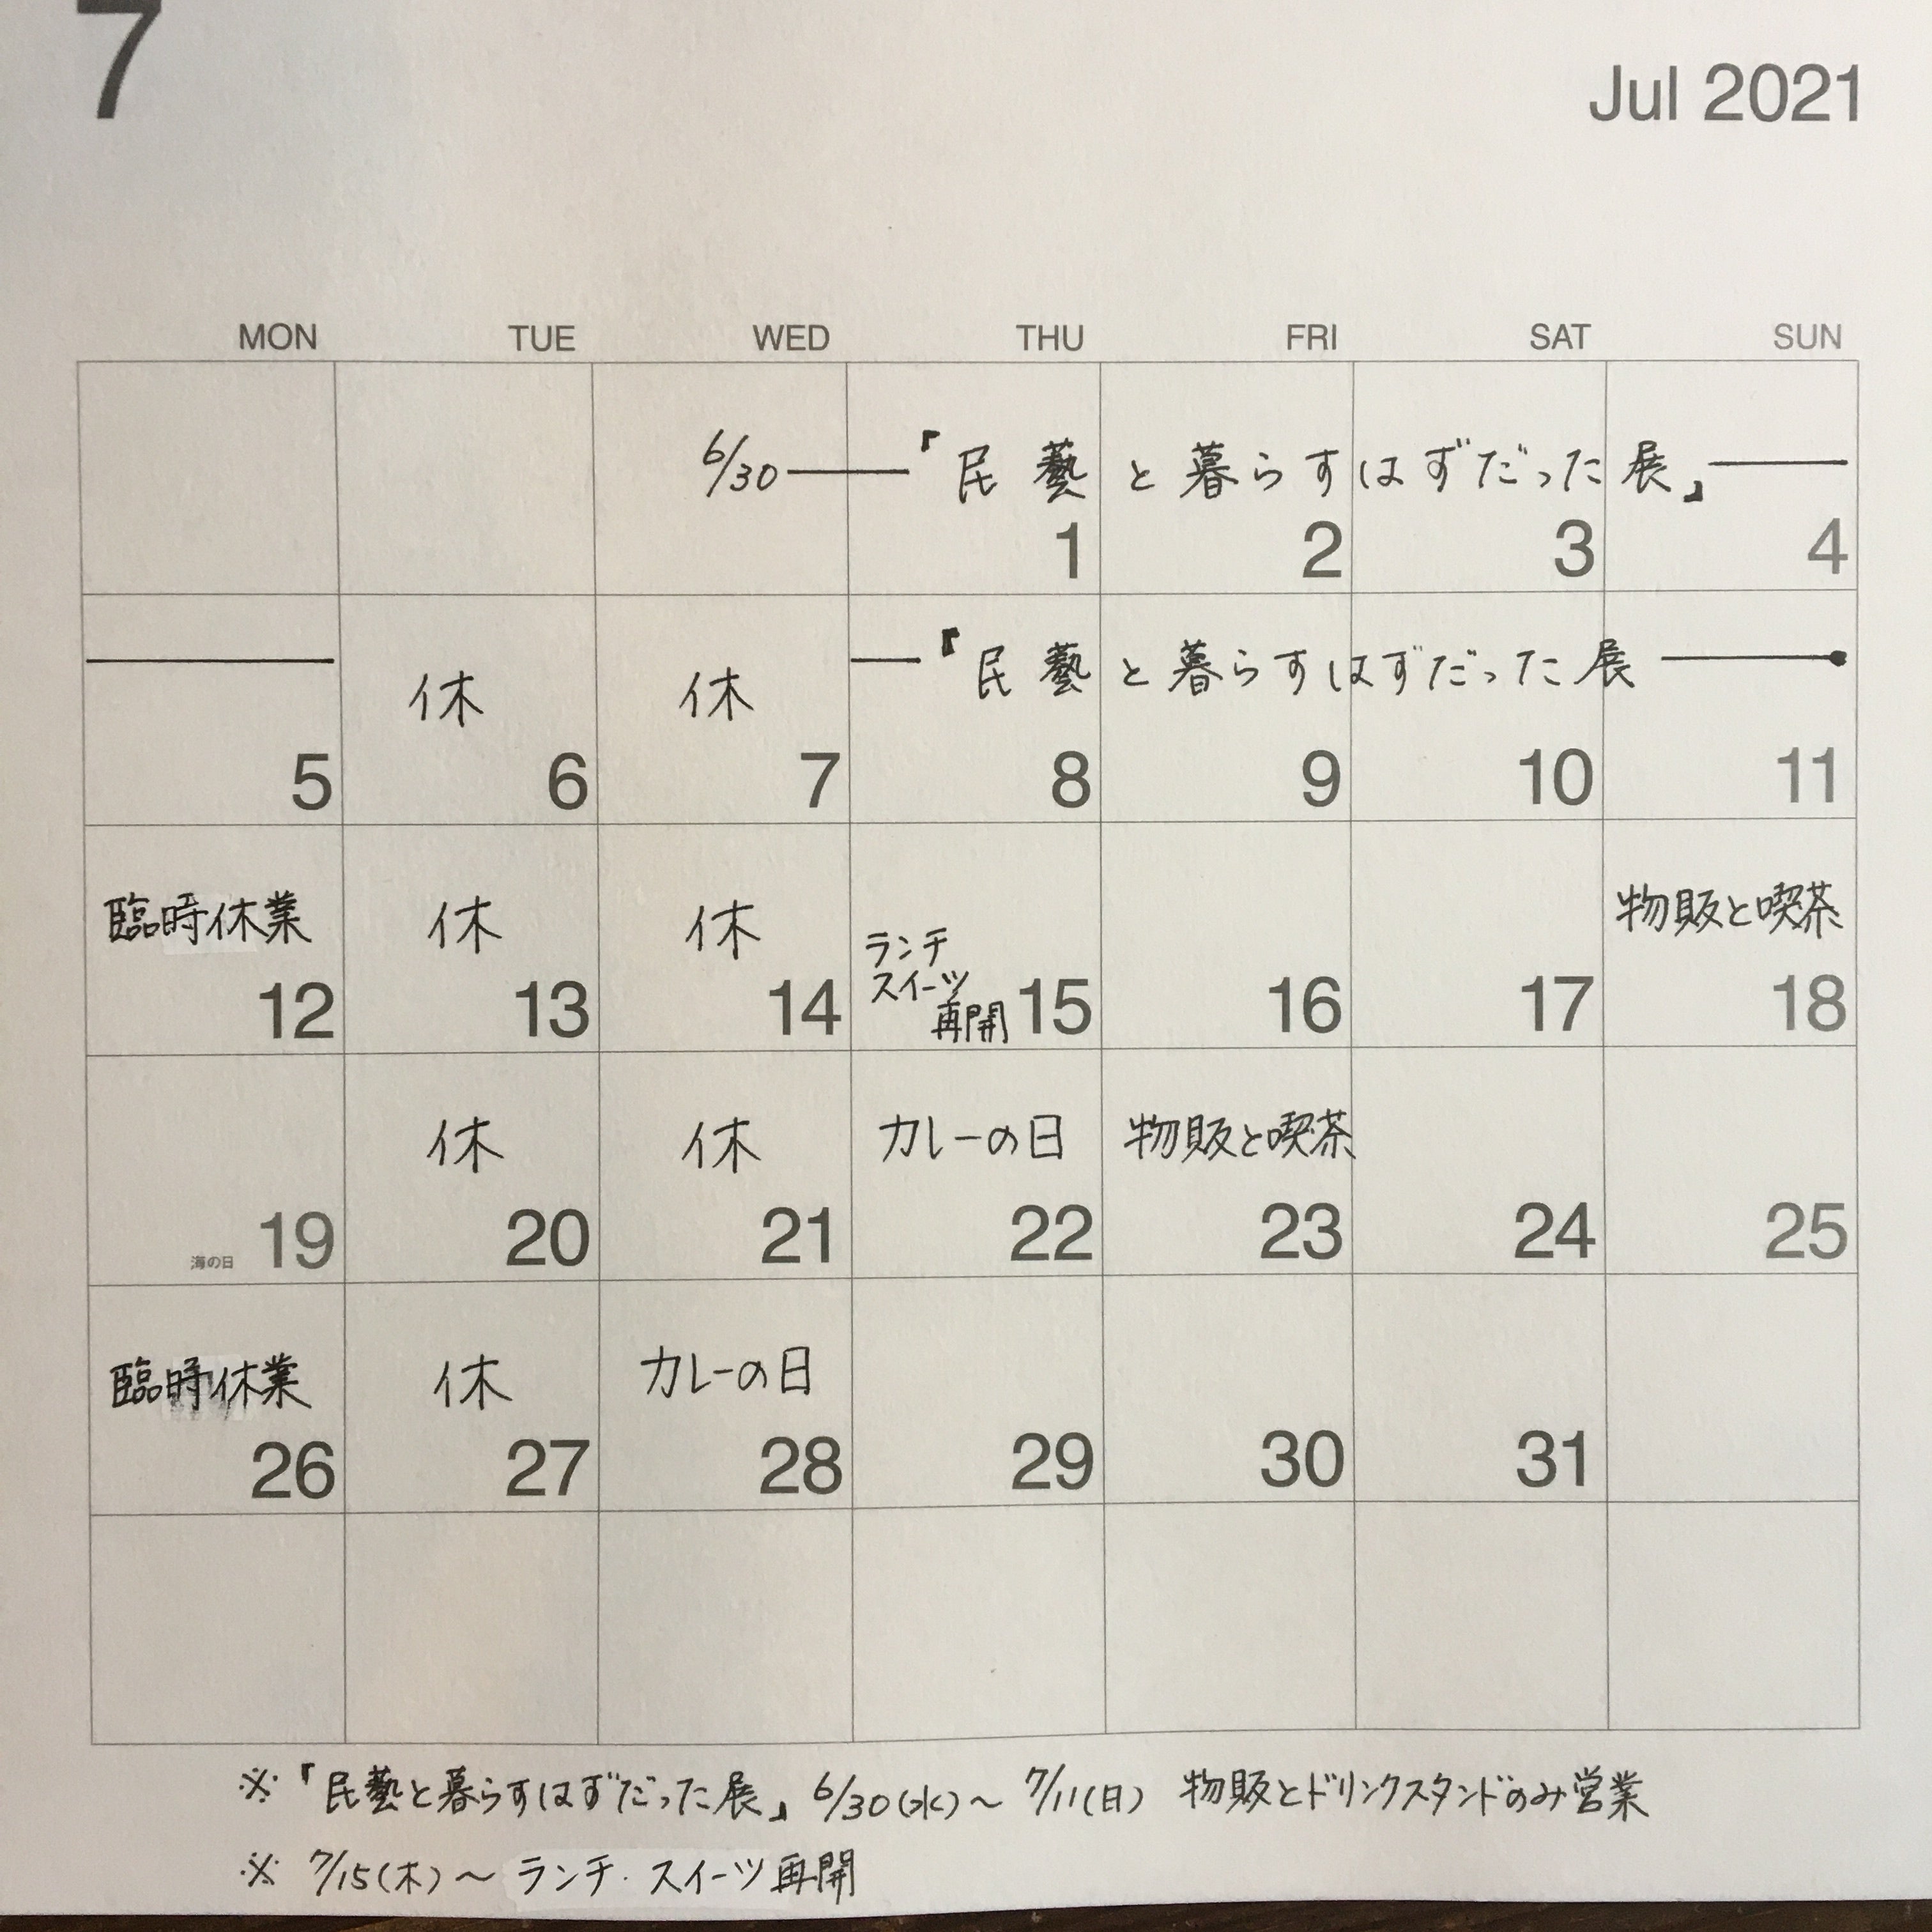 7
Jul 2021
MON TUE WED THU FRI SAT SUN
6/30 『民藝と暮らすはずだった展』
1 2 3 4
休 休 『民藝と暮らすはずだった展
5 6 7 8 9 10 11
臨時休業 休 休 ランチ スイーツ 再開 物販と喫茶
12 13 14 15 16 17 18
休 休 カレーの日 物販と喫茶
海の日 19 20 21 22 23 24 25
臨時休業 休 カレーの日
26 27 28 29 30 31
※『民藝と暮らすはずだった展』 6/30(水)～ 7/11(日) 物販とドリンクスタンドのみ営業
※ 7/15(木)～ ランチ・スイーツ再開